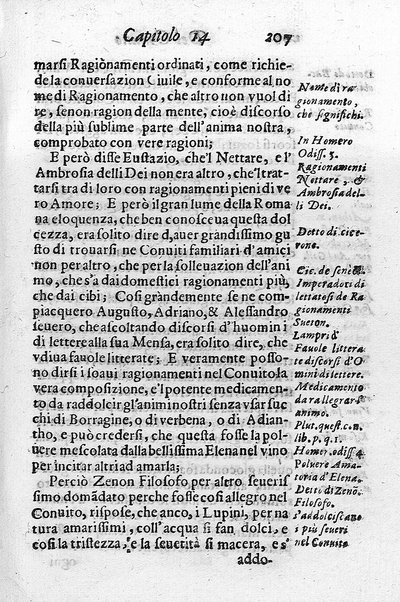 Capitolo 14 207
marsi Ragiònamenti ordinati, come richie-
de la conuersazion Ciuile, e conforme al no
me di Ragionamento, che altro non vuol di
re, se non ragion della mente, cioè discorso
della più sublime parte dell'anima nostra,
comprobato con vere ragioni;
E però disse Eustazio, che'l Nettare, e l'
Ambrosia delli Dei non era altro, che'l trat-
tarsi tra di loro con ragionamenti pieni di ve
ro Amore; E però il gran lume della Roma
na eloquenza, che ben conosceua questa dol
cezza, era solito dire d'auer grandissimo gu
sto di trouarsi ne Conuiti familiari d'amici
non per altro, che per la solleuazion dell'ani
mo, che s'a dai domestici ragionamenti più,
che dai cibi; Così gràndemente se ne com-
piacquero Augusto, Adriano, & Alessandro
seuero, che ascoltando discorsi d'huomini
di lettere alla sua Mensa, era solito dire, che
vdiua fauole litterate; E veramente posso-
no dirsi i soaui ragionamenti nel Conuito la
vera composizione, e'l potente medicamen-
to da raddolcir gl'animi nostri senza vsar suc
chi di Borragine, o di verbena, o di Adian-
tho, e può credersi, che questa fosse la pol-
uere mescolata dalla bellissima Elena nel vino
per incitar altrui ad amarla;
Perciò Zenon Filosofo per altro seueris
simo domãdato perche fosse così allegro nel
Conuito, rispose, che anco, i Lupini, per na
tura amarissimi, coll'acqua si fan dolci, e
così la tristezza, e la seuetità si macera, e s'
addo-
Nome di ra
gionamento,
che significhi.
In Homero
Odiss. 5.
Ragionamenti
Nettare, &
Ambrosia del-
li Dei.
Detto di cice-
rone.
Cic. de senect.
Imperadori di
lettatosi de Ra
gionamenti
Sueton.
Lamprid
Fauole littera
te discorsi d'O
mini di lettere.
Medicamento
da rallegrar s
animo.
Plut. quest. con.
lib. p. q. 1.
Homer. odiss 4.
Poluere Ama-
toria d'Elena.
Detto di Zenõ.
Filosofo.
s'addolciscano
i più seueri
nel Conuito